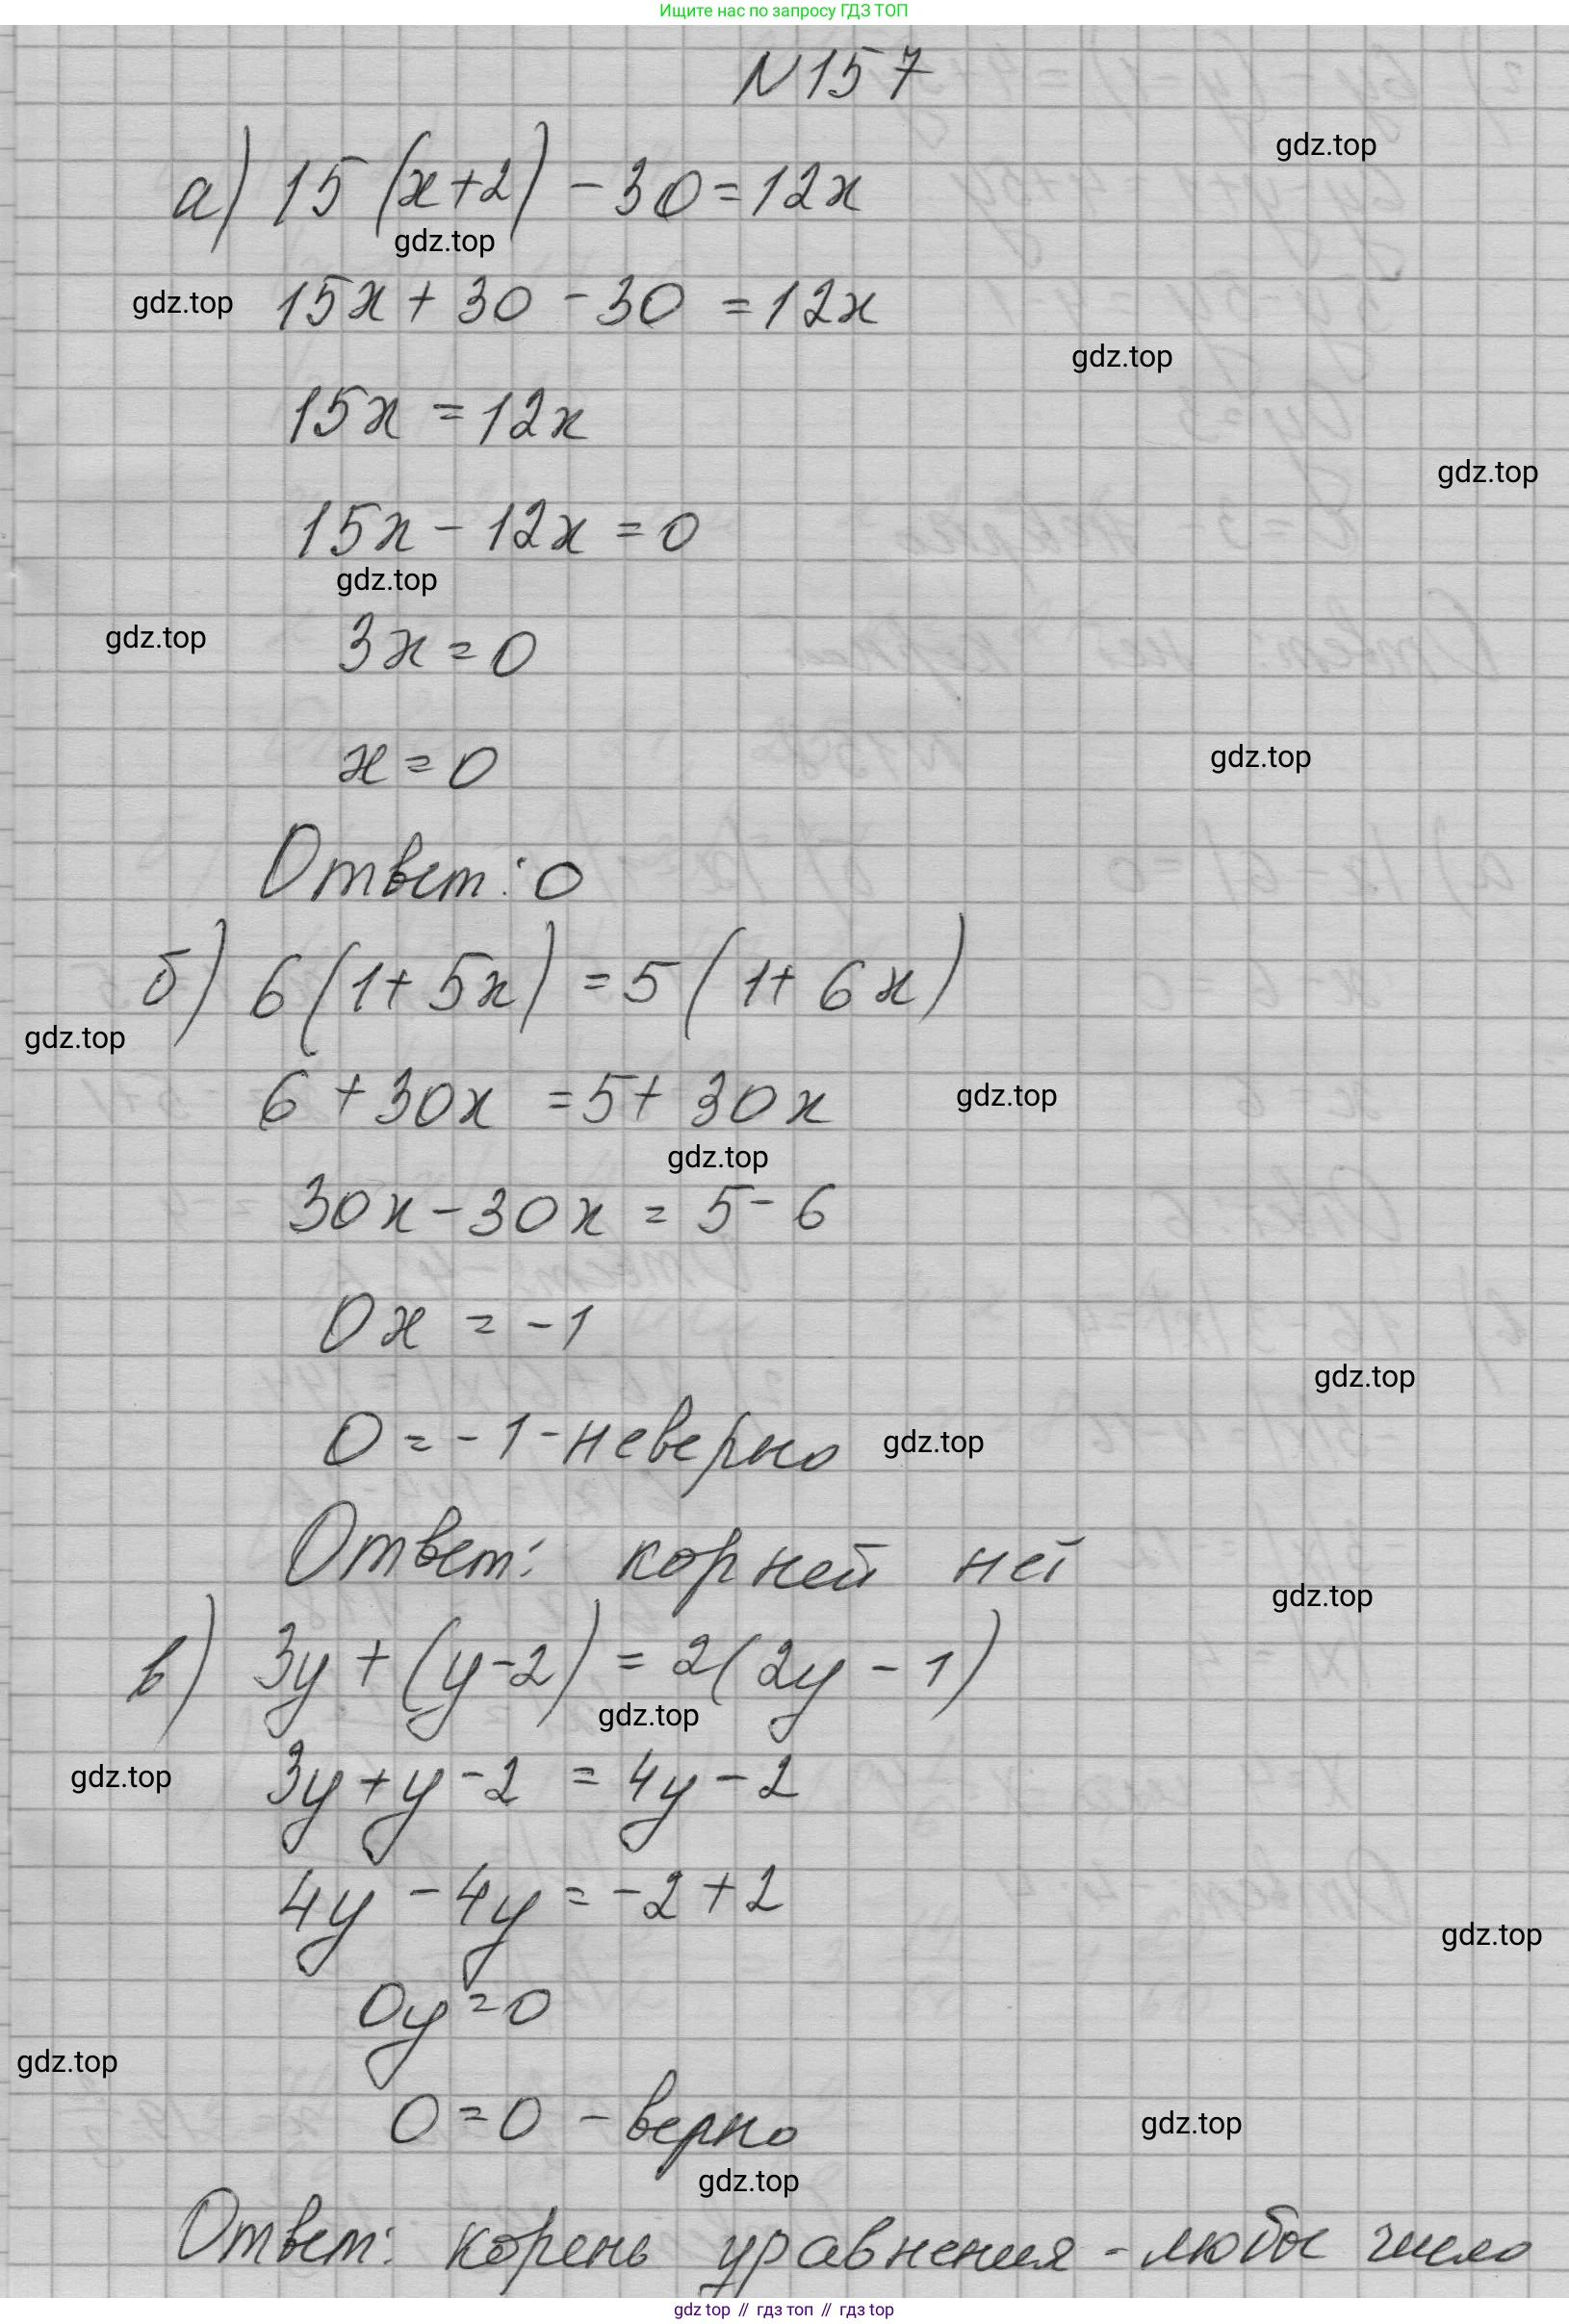 Ищите нас по запросу ГДЗ ТОП
N157
gdz.top
а) 15(x+2) - 30 = 12x
gdz.top
gdz.top
15x + 30 - 30 = 12x
gdz.top
15x = 12x
gdz.top
15x - 12x = 0
gdz.top
gdz.top
3x = 0
gdz.top
x = 0
Ответ: 0
б) 6(1+5x) = 5(1+6x)
gdz.top
6 + 30x = 5 + 30x
gdz.top
gdz.top
30x - 30x = 5 - 6
0x = -1
gdz.top
0 = -1 - неверно
gdz.top
Ответ: корней нет
gdz.top
в) 3y + (y-2) = 2(2y - 1)
gdz.top
gdz.top
3y + y - 2 = 4y - 2
4y - 4y = -2 + 2
gdz.top
0y = 0
gdz.top
0 = 0 - верно
gdz.top
gdz.top
Ответ: корень уравнения - любое число
gdz top // гдз топ // gdz top